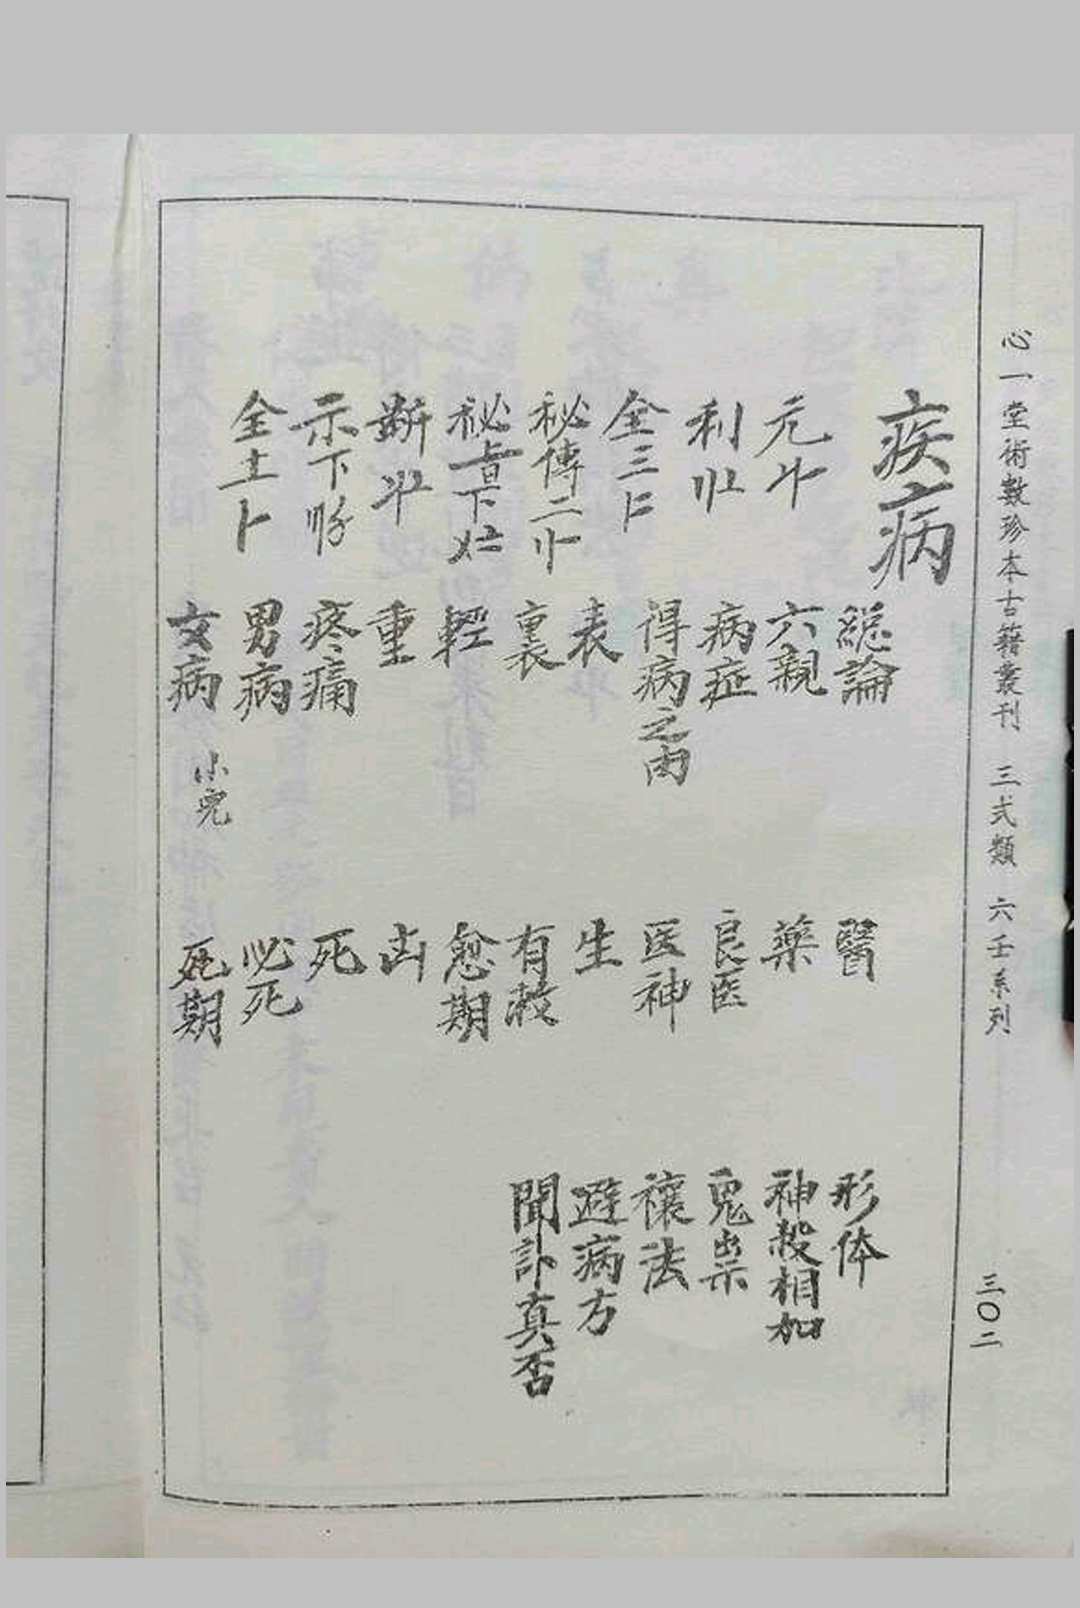 心一堂術數珍本古籍叢刊 三式類 六壬系列
三〇二
疾病
元
利
全三
秘傳二
秘
断
示下
全土
總論
六親
病症
得病之由
表
裏
輕
重
疼痛
男病
女病 小児
醫
藥
良医
医神
生
有救
愈期
凶
死
必死
死期
形体
神殺相加
鬼祟
禳法
避病方
聞訃真否